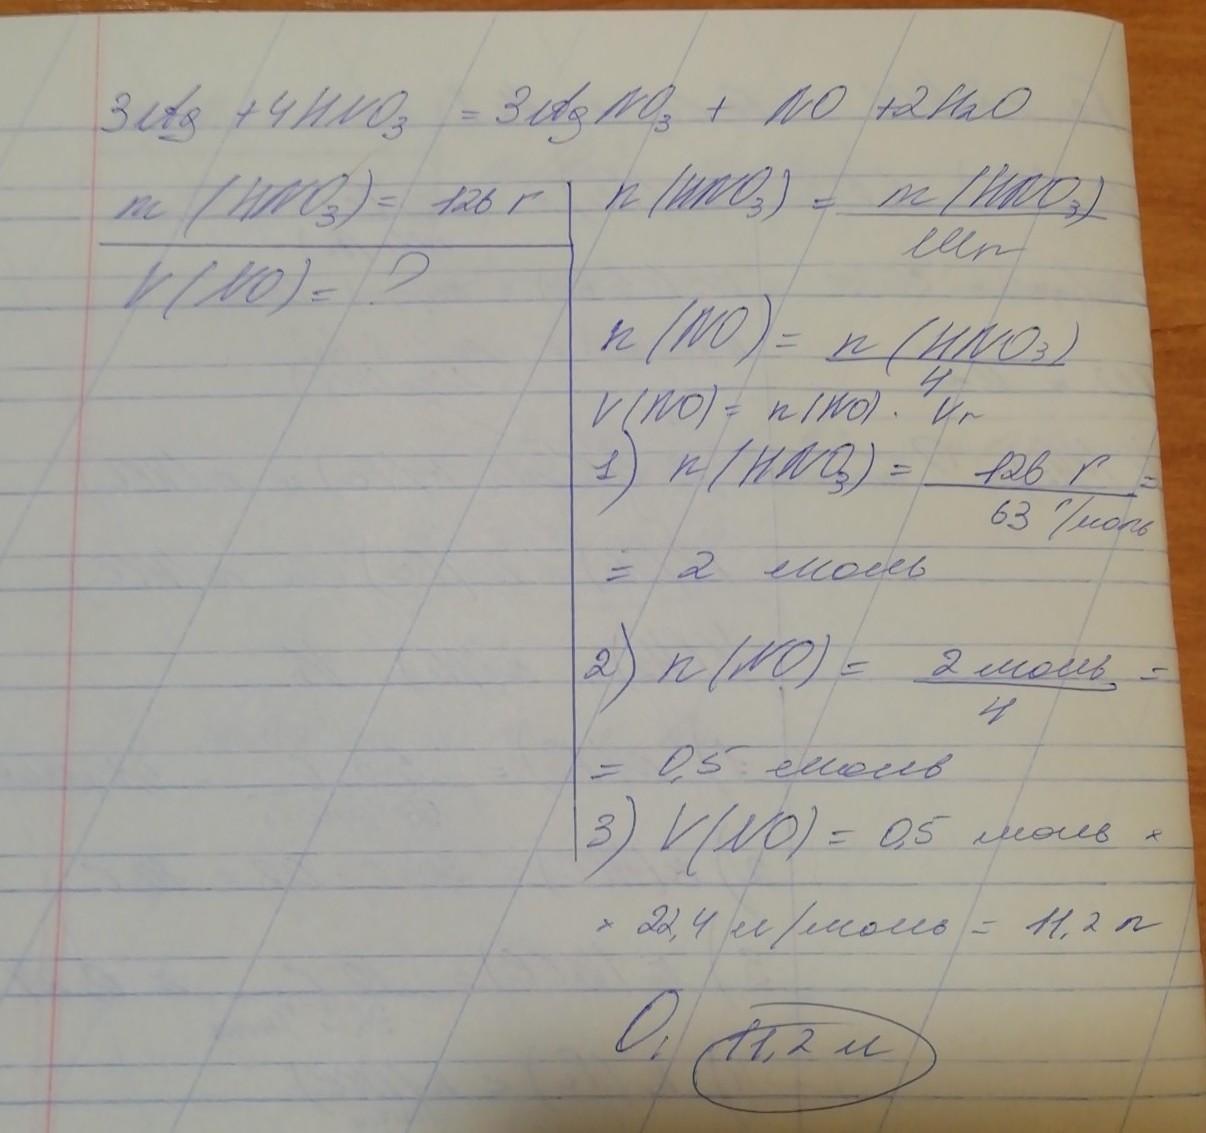 3Ag + 4HNO₃ = 3AgNO₃ + NO + 2H₂O
m (HNO₃) = 126 г
V (NO) = ?
n (HNO₃) = m (HNO₃) / Mr
n (NO) = n (HNO₃) / 4
V (NO) = n (NO) · Vr
1) n (HNO₃) = 126 г / 63 г/моль =
= 2 моль
2) n (NO) = 2 моль / 4 =
= 0,5 моль
3) V (NO) = 0,5 моль ×
× 22,4 л/моль = 11,2 л
О, 11,2 л